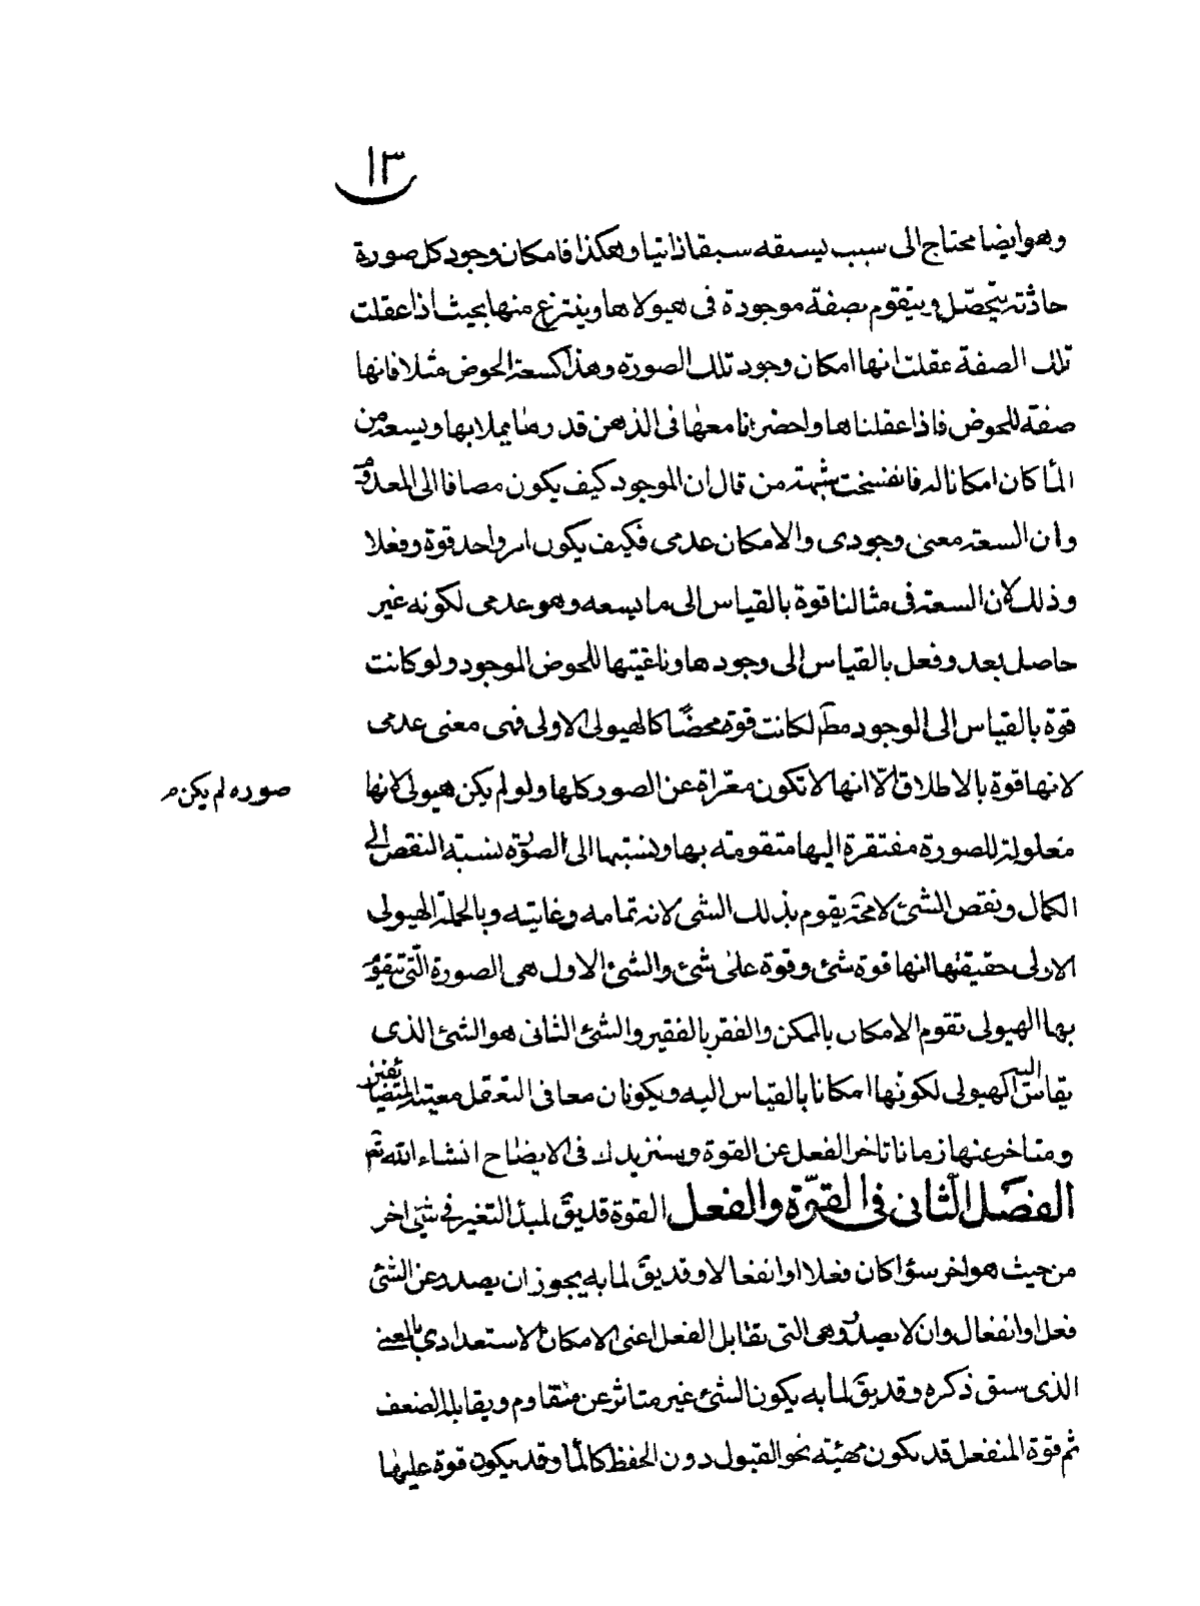 ١٣
وهو ايضا محتاج الى سبب يسبقه سبقا ذاتيا وهكذا فامكان وجود كل صورة
حادثة يتحصّل ويتقوم بصفة موجودة فى هيولاها وينتزع منها بحيث اذا عقلت
تلك الصفة عقلت انها امكان وجود تلك الصورة وهذا كسعة الحوض مثلا فانها
صفة للحوض فاذا عقلناها واحضرنا معها فى الذهن قدر ما يملا بها ويسعه من
الماء كان امكانا له فانفسخت شبهة من قال ان الموجود كيف يكون مضافا الى المعدوم
وان السعة معنى وجودى والامكان عدمى فكيف يكون امر واحد قوة وفعلا
وذلك لان السعة فى مثالنا قوة بالقياس الى ما يسعه وهو عدمى لكونه غير
حاصل بعد وفعل بالقياس الى وجودها وناعتيتها للحوض الموجود ولو كانت
قوة بالقياس الى الوجود مط لكانت قوة محضا كالهيولى الاولى فهى معنى عدمى
لانها قوة بالاطلاق الّا انها لا تكون معراة عن الصور كلها ولو لم يكن هيولى لانها
صوره لم يكن م
معلولة للصورة مفتقرة اليها متقومة بها ونسبتها الى الصورة نسبة النقص الى
الكمال ونقص الشئ لا محة يقوم بذلك الشى لانه تمامه وغايته وبالجملة الهيولى
الاولى حقيقتها انها قوة شئ وقوة على شئ والشئ الاول هى الصورة الّتى تتقوم
بها الهيولى تقوم الامكان بالممكن والفقر بالفقير والشئ الثانى هو الشئ الذى
يقاس اليه الهيولى لكونها امكانا بالقياس اليه ويكونان معا فى التعقل معية المتضايفين
ومتاخر عنها زمانا تاخر الفعل عن القوة وسنزيدك فى الايضاح انشاء الله تم
الفصل الثانى فى القوّة والفعل القوة قد يق لمبدا التغير فى شئ اخر
من حيث هو اخر سواء كان فعلا او انفعالا وقد يق لما به يجوز ان يصدر عن الشئ
فعل او انفعال وان لا يصدر وهى التى تقابل الفعل اعنى الامكان الاستعدادى بالمعنى
الذى سبق ذكره وقد يق لما به يكون الشئ غير متاثر عن مقاوم ويقابله الضعف
ثم قوة المنفعل قد يكون مهيئة نحو القبول دون الحفظ كالماء وقد يكون قوة عليهما